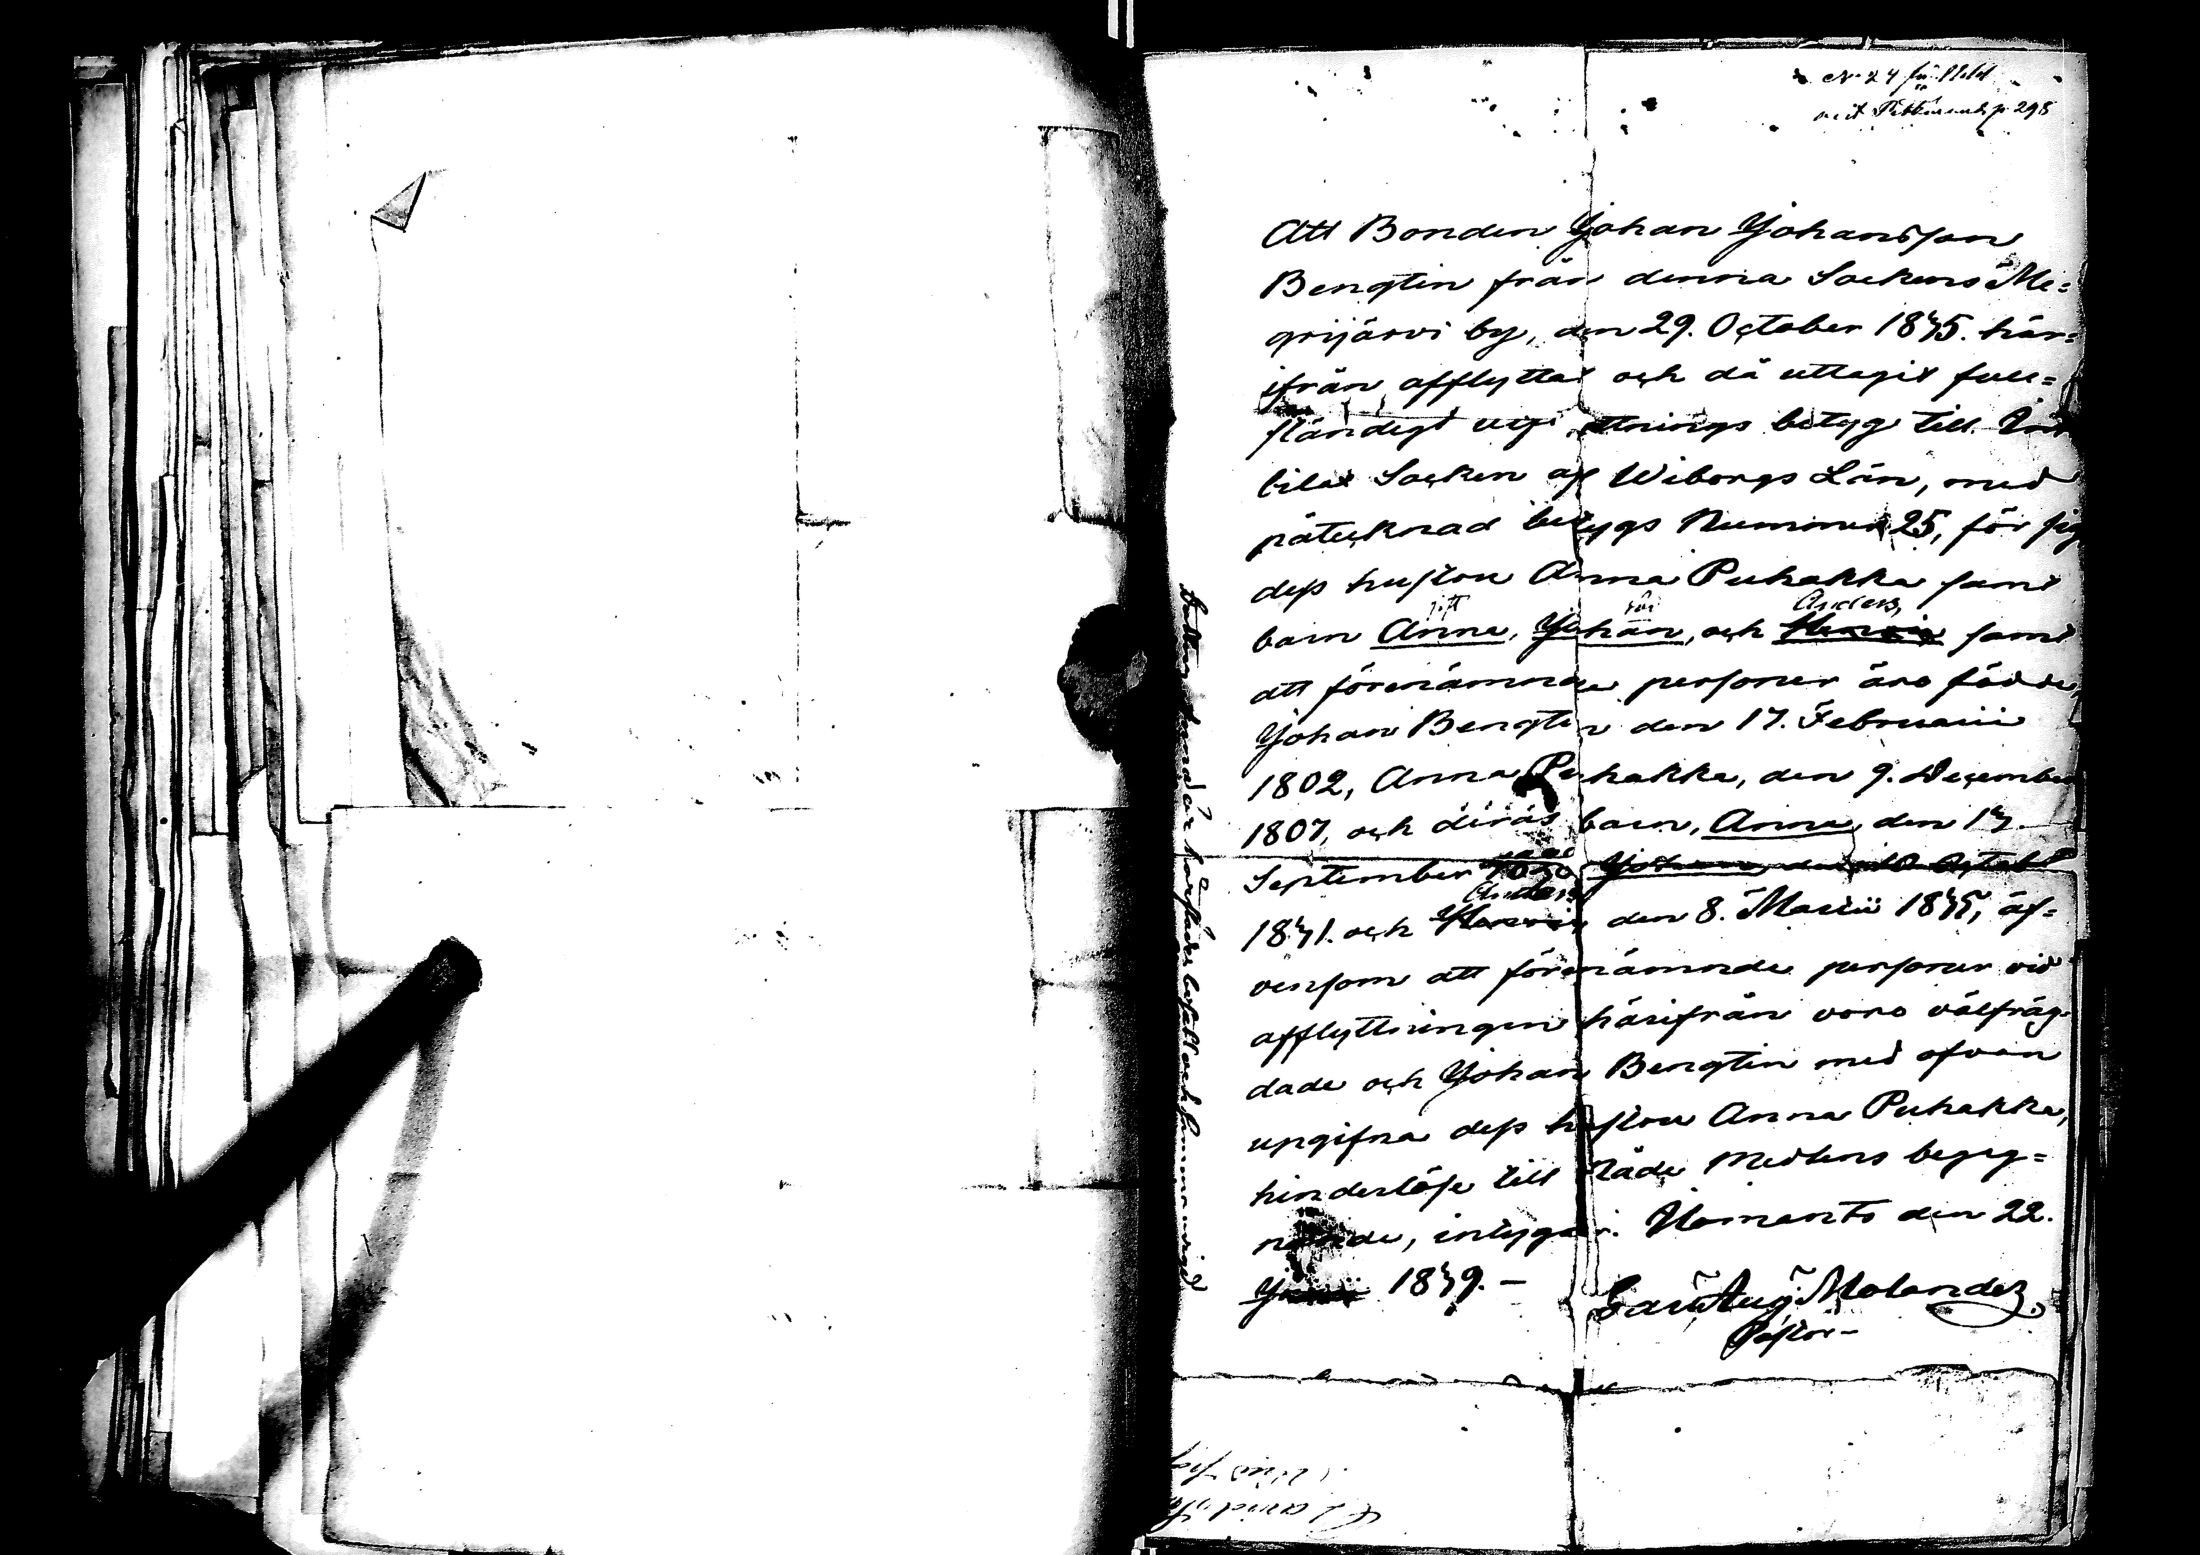 No 24
p 298
Att Bonden Johan Johansson
Bengtin från denna Sockens Me=
grijärvi by, den 29. October 1845. här=
ifrån afflyttat och då uttagit full=
ständigt betyg till Im
bilax Socken af Wiborgs Län, med
påtecknad betygs Nummer 25, för sig
dess hustru Anna Puhakka samt
Anders,
barn Anna, Johan, och samt
att förenämnde personer äro födde,
Johan Bengtin den 17. Februarii
1802, Anna Puhakka, den 9. December
1807, och deras barn, Anna, den 17
September Johan, den Octob
Anders
1841. och den 8. Martii 1845, äf=
vensom att förenämnde personer vid
afflyttningen härifrån voro välfräg
dade och Johan Bengtin med ofvan
upgifna dess hustru Anna Puhakka,
hinderlöse till Nåde Medlens begag=
nande, intygar. Ilomants den 22.
1849. –
Carl Aug Molander
Pastor –